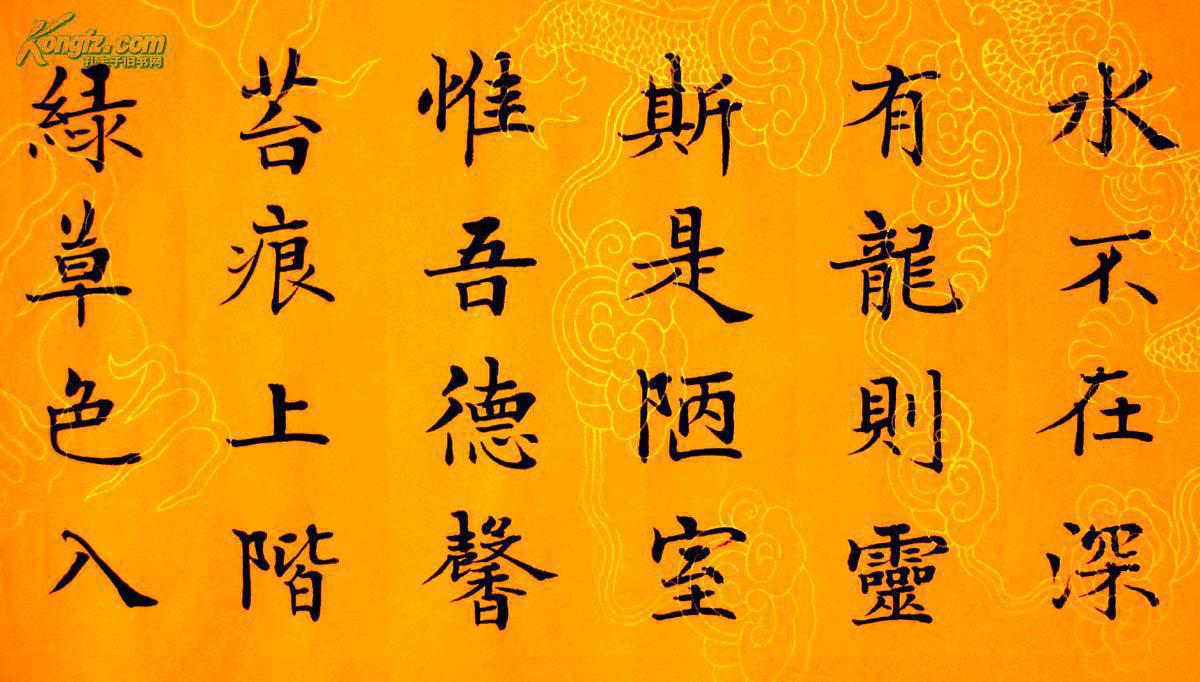 水不在深
有龍則靈
斯是陋室
惟吾德馨
苔痕上階
緑草色入
Kongfz.com
孔夫子旧书网